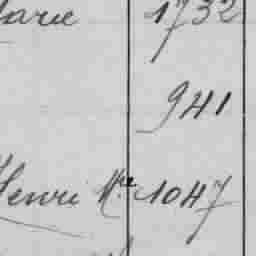 Marie 1732
941
Henri Mce 1047